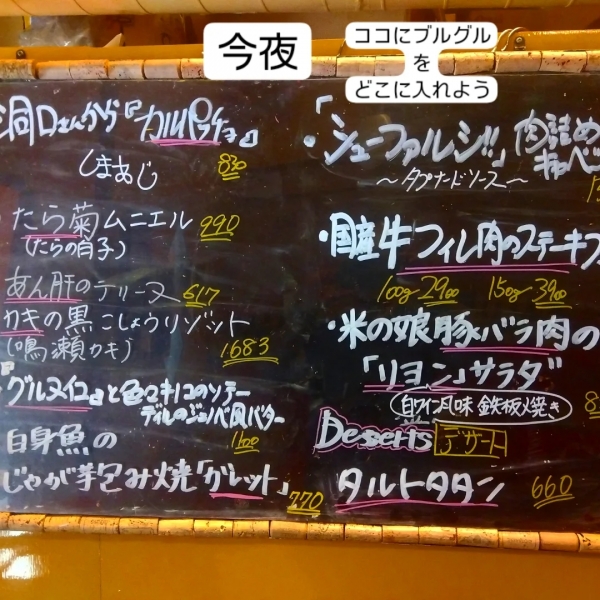 今夜
ココにブルグル
を
どこに入れよう
洞Dさんから『カルパッチョ』
しまあじ 830
たら菊ムニエル 990
(たらの白子)
あん肝のテリーヌ 617
カキの黒こしょうリゾット
(鳴瀬カキ) 1683
・グルヌイユと色々キノコのソテー
ディルのジェノベ風バター
1100
白身魚の
じゃが芋包み焼「ガレット」
770
・「シューファルシ!!」肉詰め
キャベツ
～タプナードソース～
・国産牛フィレ肉のステーキ
100g 2900 150g 3900
・米の娘豚バラ肉の
「リヨン」サラダ
白ワイン風味 鉄板焼き
Desserts デザート
タルトタタン 660